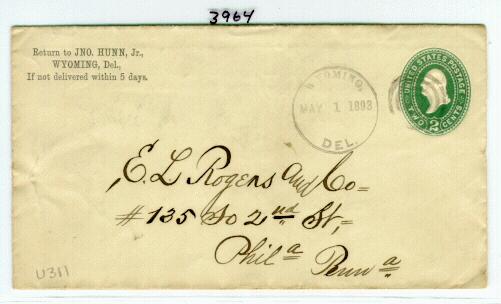 3964
Return to JNO. HUNN, Jr.,
WYOMING, Del.,
If not delivered within 5 days.
WYOMING,
MAY 1 1893
DEL.
UNITED STATES POSTAGE
TWO 2 CENTS
E. L. Rogers and Co=
#135 So 2nd St,=
Phila Penna=
U311